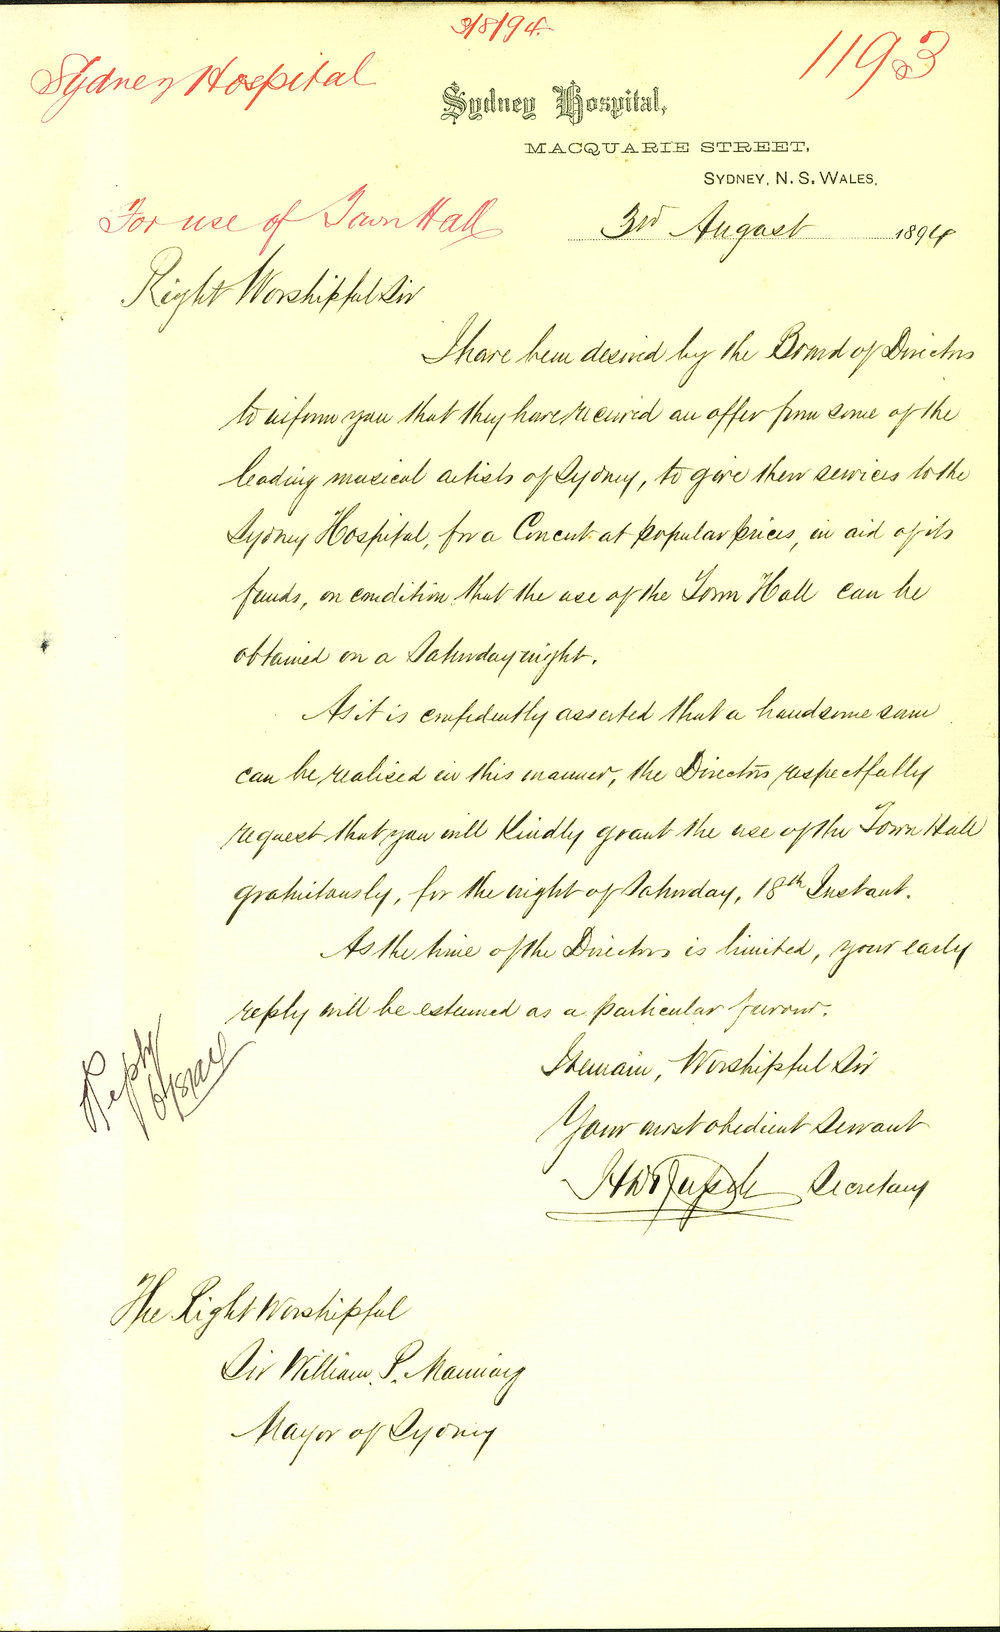 3/8/94.
1193
Sydney Hospital
Sydney Hospital,
MACQUARIE STREET,
SYDNEY, N. S. WALES.
For use of Town Hall
3rd August 1894
Right Worshipful Sir
I have been desired by the Board of Directors
to inform you that they have received an offer from some of the
leading musical artists of Sydney, to give their services to the
Sydney Hospital, for a Concert at popular prices, in aid of its
funds, on condition that the use of the Town Hall can be
obtained on a Saturday night.
As it is confidently asserted that a handsome sum
can be realised in this manner, the Directors respectfully
request that you will kindly grant the use of the Town Hall
gratuitously, for the night of Saturday, 18th Instant.
As the time of the Directors is limited, your early
reply will be esteemed as a particular favour.
Reply
I remain, Worshipful Sir
Your most obedient Servant
Secretary
The Right Worshipful
Sir William P. Manning
Mayor of Sydney